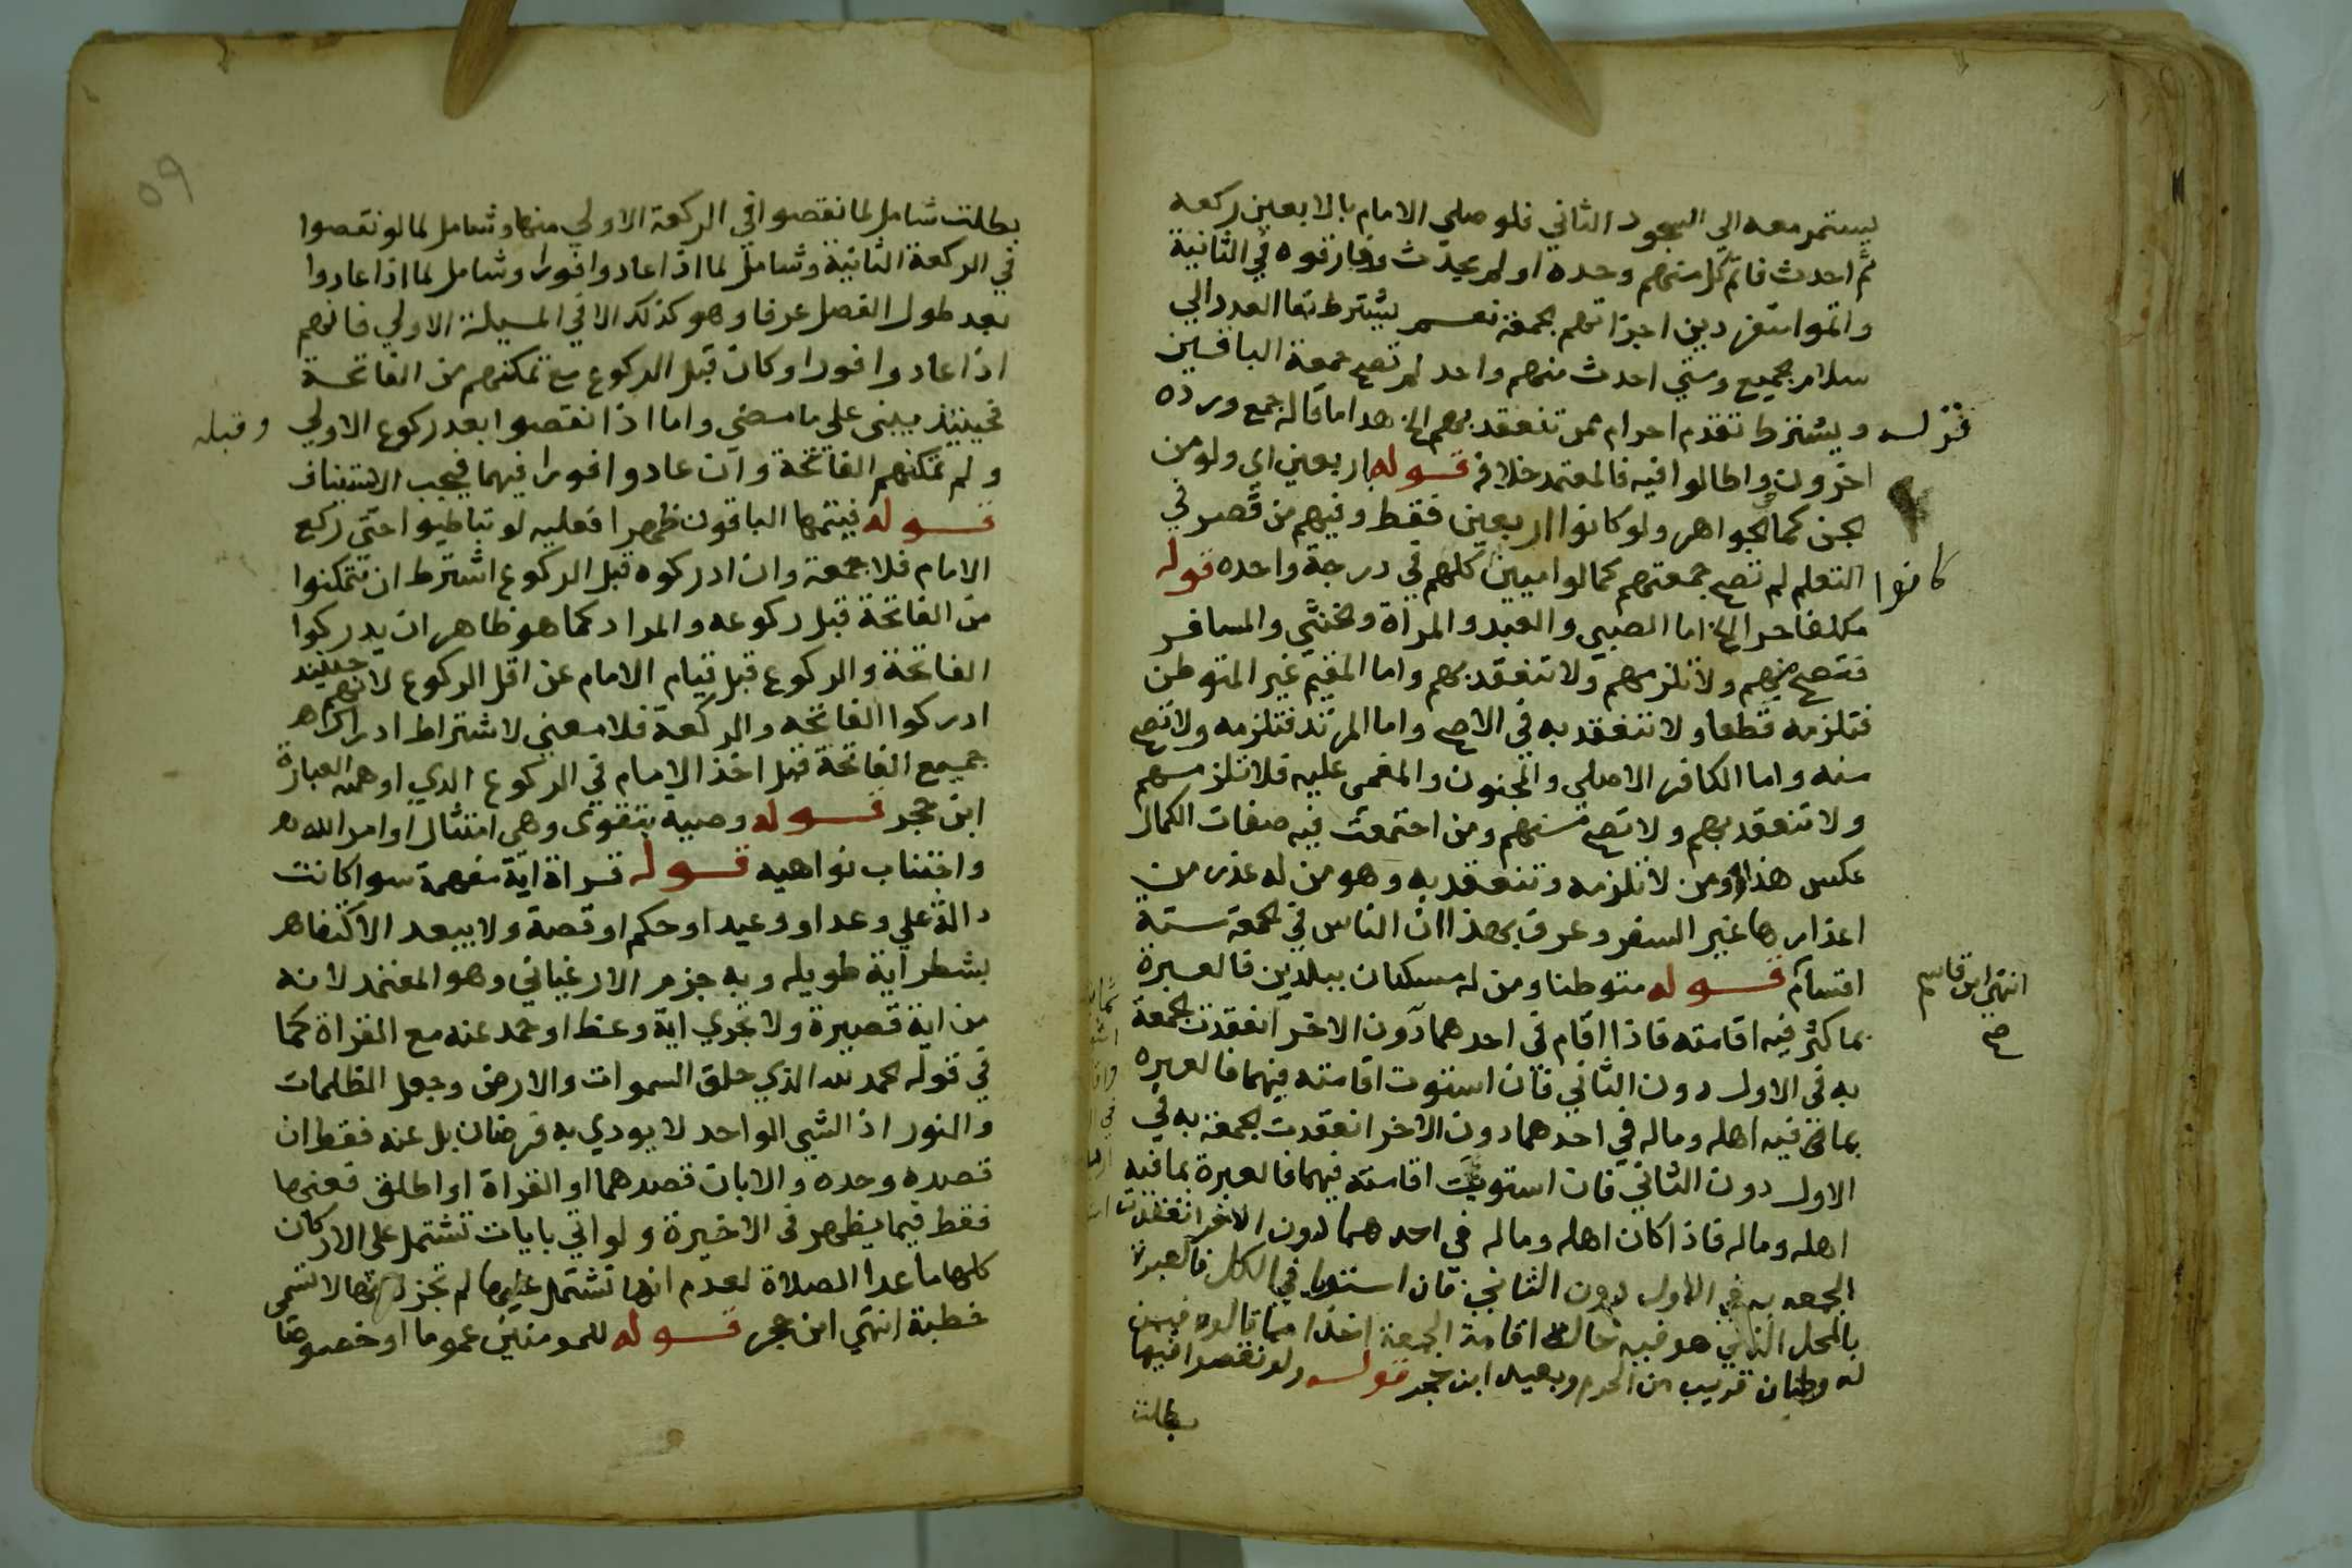 يستمر معه الى السجود الثاني فلو صلى الامام بالاربعين ركعه
ثم احدث فاتم كل منهم وحده او لم يحدث وفارقوه في الثانية
واتموا منفردين اجزاتهم الجمعة نعم يشترط بقا العدد الي
سلام الجميع ومتي احدث منهم واحد لم تصح جمعة الباقين
ويشترط تقدم احرام من تنعقد بهم الخ هذا ما قاله جمع ورده
اخرون واطالوا فيه فالمعتمد خلافه قوله باربعين اي ولو من
الجن كما الجواهر ولو كانوا اربعين فقط وفيهم من قصر في
التعلم لم تصح جمعتهم كما لو اميين كلهم في درجة واحده قوله
كانوا
مكلفا حرا الخ اما الصبي والعبد والمراة والخنثي والمسافر
فتصح منهم ولا تلزمهم ولا تنعقد بهم واما المقيم غير المتوطن
فتلزمه قطعا ولا تنعقد به في الاصح واما المرتد فتلزمه ولا تصح
منه واما الكافر الاصلي والمجنون والمغمى عليه فلا تلزمهم
ولا تنعقد بهم ولا تصح منهم ومن اجتمعت فيه صفات الكمال
عكس هذا ومن لا تلزمه وتنعقد به وهو من له عذر من
اعذارها غير السفر وعرف بهذا ان الناس في الجمعة ستة
اقسام قوله متوطنا ومن له مسكنان ببلدين فالعبرة
انتهى ابن قاسم
صح
بما كثر فيه اقامته فاذا اقام في احدهما دون الاخر انعقدت الجمعة
به في الاول دون الثاني فان استوت اقامته فيهما فالعبره
بما في فيه اهله وماله في احدهما دون الاخر انعقدت الجمعة به في
الاول دون الثاني فان استويت اقامته فيهما فالعبرة بما فيه
اهله وماله فاذا كان اهله وماله في احدهما دون الاخر انعقدت
الجمعه به في الاول دون الثاني فان استويا في الكل فالعبرة
بالمحل الذي هو فيه حالة اقامة الجمعة اخذا مما قالوه فيمن
له وطنان قريب من الحرم وبعيد ابن حجر قوله ولو نقصوا فيها
بطلت
٥٩
بطلت شامل لما نقصوا في الركعة الاولي منها وشامل لما لو نقصوا
في الركعة الثانية وشامل لما اذا عادوا فورا وشامل لما اذا عادوا
بعد طول الفصل عرفا وهو كذلك الا في المسيلة الاولي فانهم
اذا عادوا فورا وكان قبل الركوع مع تمكنهم من الفاتحة
فحينيذ يبنى على ما مضي واما اذا نقصوا بعد ركوع الاولي وقبله
ولم تمكنهم الفاتحة وان عادوا فورا فيهما فيجب الاستيناف
قوله فيتمها الباقون ظهرا فعليه لو تباطيوا حتى ركع
الامام فلا جمعة وان ادركوه قبل الركوع اشترط ان يتمكنوا
من الفاتحة قبل ركوعه والمراد كما هو ظاهر ان يدركوا
الفاتحة والركوع قبل قيام الامام عن اقل الركوع لانهم حينيذ
ادركوا الفاتحه والركعة فلا معني لاشتراط ادراكهم
جميع الفاتحة قبل اخذ الامام في الركوع الذي اوهمته العبارة
ابن حجر قوله وصية بتقوى وهي امتثال اوامر الله
واجتناب نواهيه قوله قراة اية مفهمة سوا كانت
دالة علي وعد او وعيد او حكم او قصة ولا يبعد الاكتفا
بشطر آية طويله وبه جزم الارغياني وهو المعتمد لانه
من اية قصيرة ولا تجزي اية وعظ او حمد عنه مع القراة كما
في قوله الحمد لله الذي خلق السموات والارض وجعل الظلمات
والنور اذ الشي الواحد لا يودي به فرضان بل عنه فقط ان
قصده وحده والا بان قصدهما او القراة او اطلق فعنها
فقط فيما يظهر في الاخيرة ولو اتي بايات تشتمل على الاركان
كلها ما عدا الصلاة لعدم انها تشتمل عليها لم تجز لانها لا تسمى
خطبة انتهي ابن حجر قوله للمومنين عموما او خصوصا